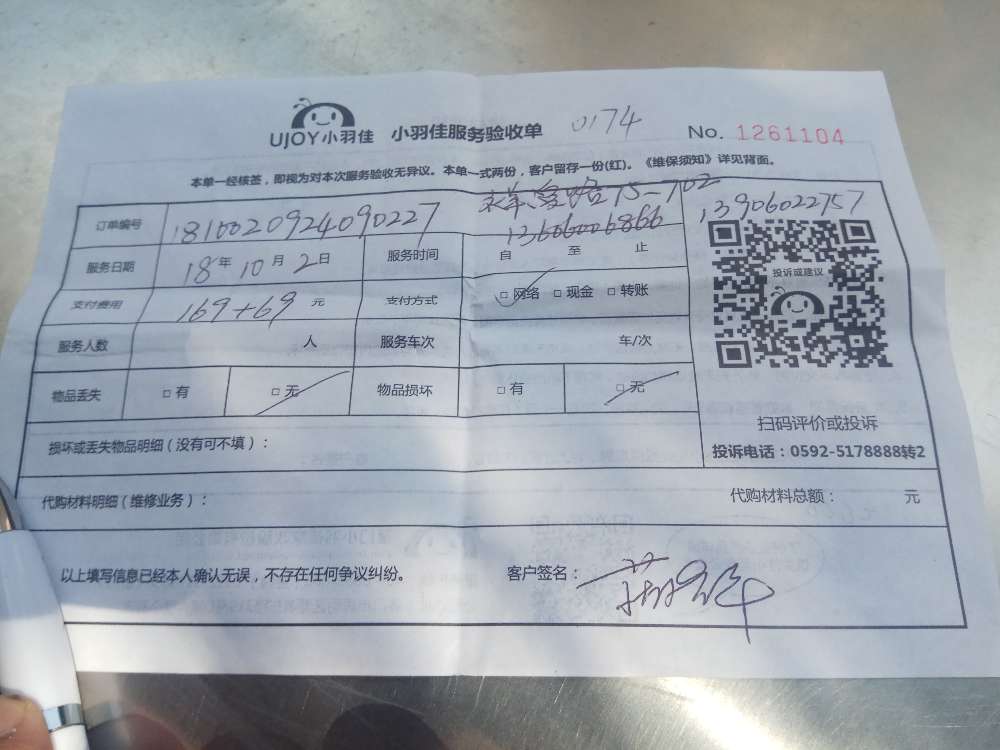 UJOY小羽佳 小羽佳服务验收单 0174 No. 1261104
本单一经核签，即视为对本次服务验收无异议。本单一式两份，客户留存一份(红)。《维保须知》详见背面。
75-702
订单编号 1810020924090227 13606006866 13906022757
服务日期 18年10月2日 服务时间 自 至 止
支付费用 169+69 元 支付方式 □ 网络 □ 现金 □ 转账
投诉或建议
服务人数 人 服务车次 车/次
物品丢失 □ 有 □ 无 物品损坏 □ 有 □ 无
扫码评价或投诉
损坏或丢失物品明细（没有可不填）： 投诉电话：0592-5178888转2
代购材料明细（维修业务）： 代购材料总额： 元
以上填写信息已经本人确认无误，不存在任何争议纠纷。 客户签名：